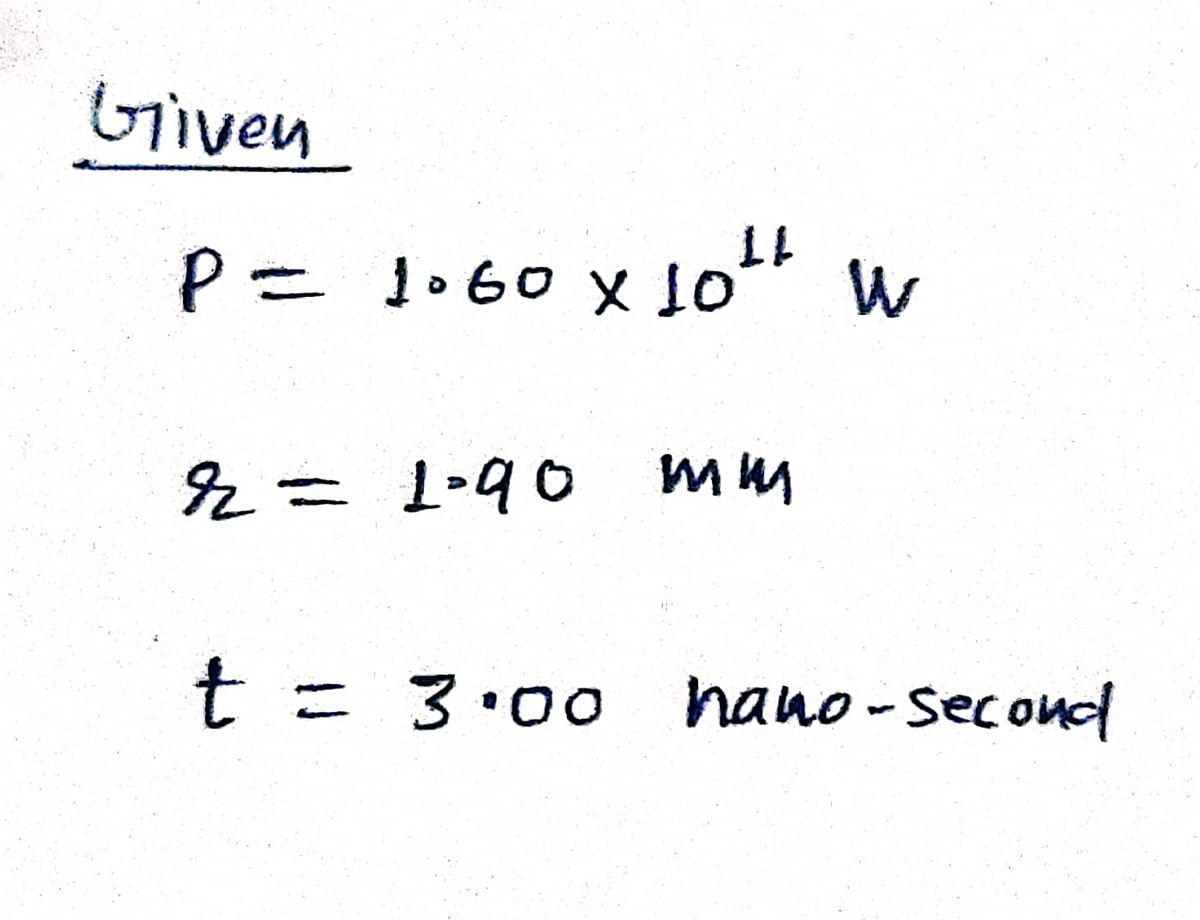 Given
P = 1.60 x 10¹¹ W
r = 1.90 mm
t = 3.00 nano-second